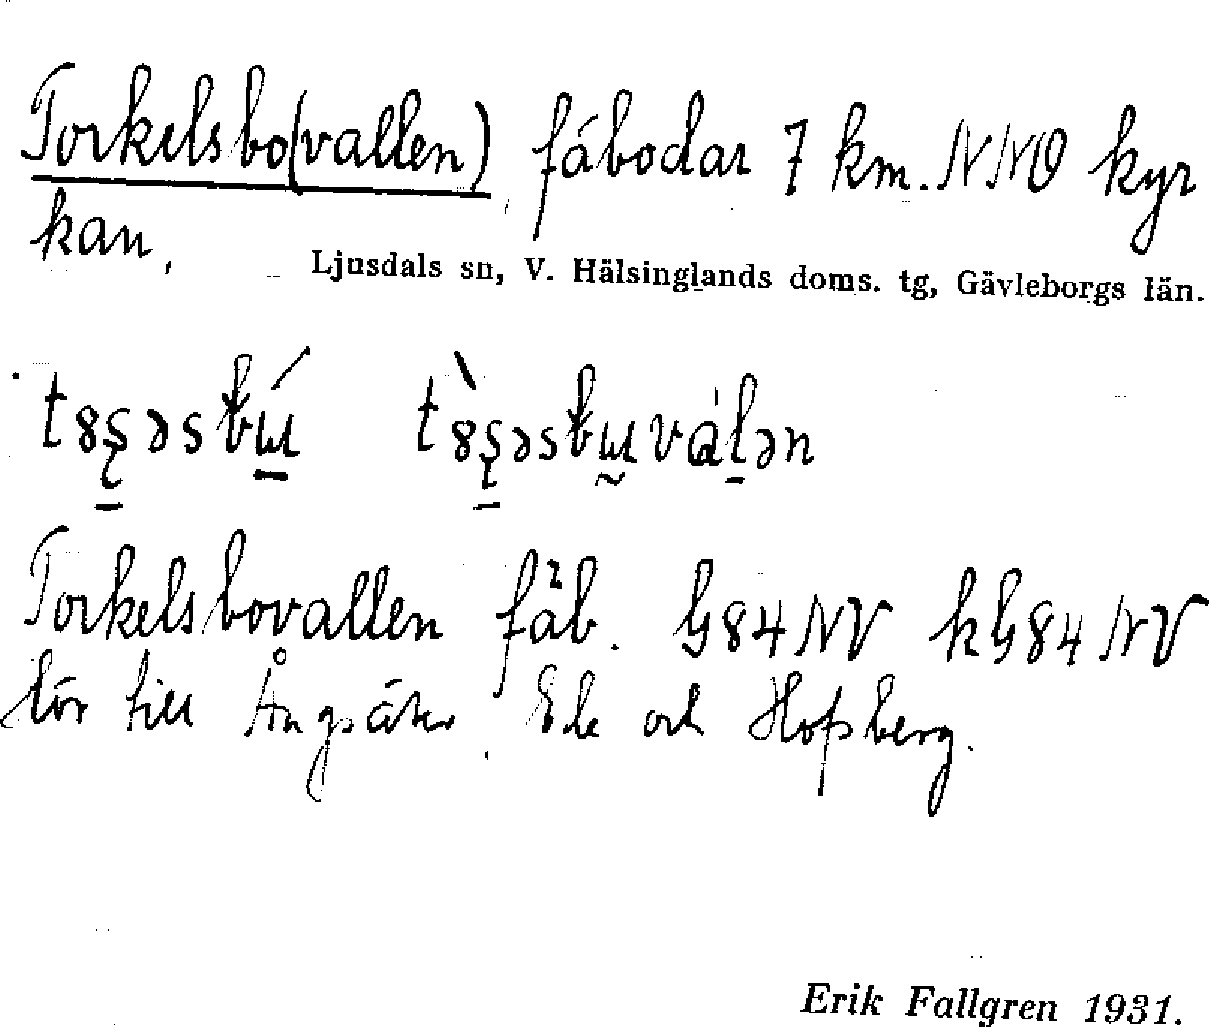 Torkelsbo(vallen), fäbodar 7 km. NNO kyr
kan,
Ljusdals sn, V. Hälsinglands doms. tg, Gävleborgs län.
Torkelsbovallen fäb. G84NV kG84NV
hör till Ängsäter, Ede och Hofsberg.
Erik Fallgren 1931.